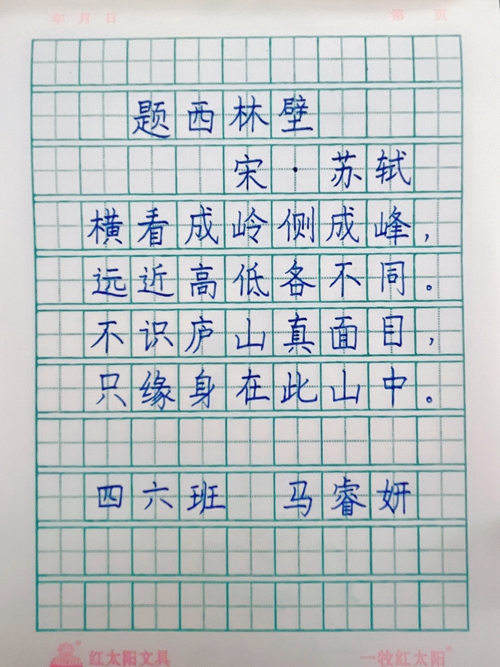 年 月 日 第 页
题西林壁
宋·苏轼
横看成岭侧成峰，
远近高低各不同。
不识庐山真面目，
只缘身在此山中。
四六班 马睿妍
红太阳文具 一牧红太阳